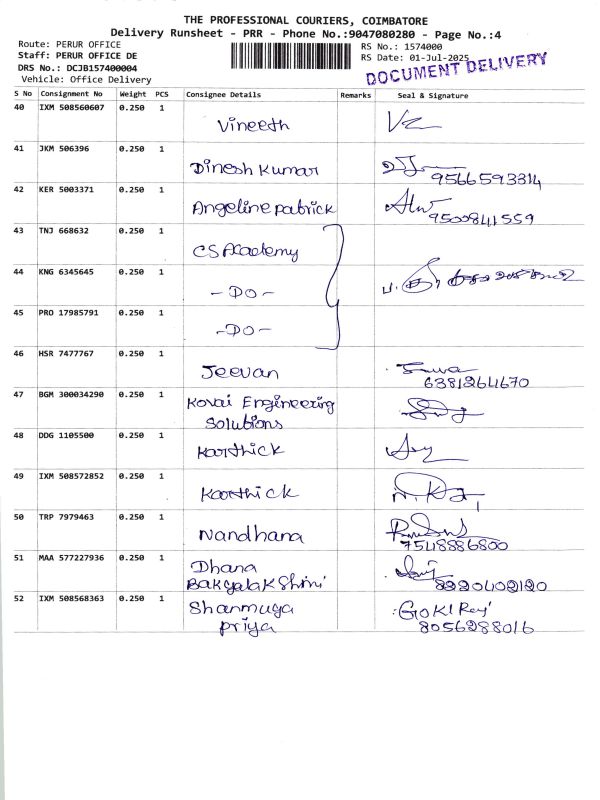 THE PROFESSIONAL COURIERS, COIMBATORE
Delivery Runsheet - PRR - Phone No.:9047080280 - Page No.:4
Route: PERUR OFFICE
RS No.: 1574000
Staff: PERUR OFFICE DE
RS Date: 01-Jul-2025
DRS No.: DCJB157400004
DOCUMENT DELIVERY
Vehicle: Office Delivery
S No Consignment No Weight PCS Consignee Details Remarks Seal & Signature
40 IXM 508560607 0.250 1
Vineeth
41 JKM 506396 0.250 1
Dinesh Kumar
9566593314
42 KER 5003371 0.250 1
Angeline patrick
9500841559
43 TNJ 668632 0.250 1
CS Academy
44 KNG 6345645 0.250 1
-DO-
45 PRO 17985791 0.250 1
-DO-
46 HSR 7477767 0.250 1
Jeevan
6381264670
47 BGM 300034290 0.250 1
Kovai Engineering
Solutions
48 DDG 1105500 0.250 1
Karthick
49 IXM 508572852 0.250 1
Karthick
50 TRP 7979463 0.250 1
Nandhana
7548886800
51 MAA 577227936 0.250 1
Dhana
Bakgalakshmi
8220402120
52 IXM 508568363 0.250 1
Shanmuga
priya
8056288016